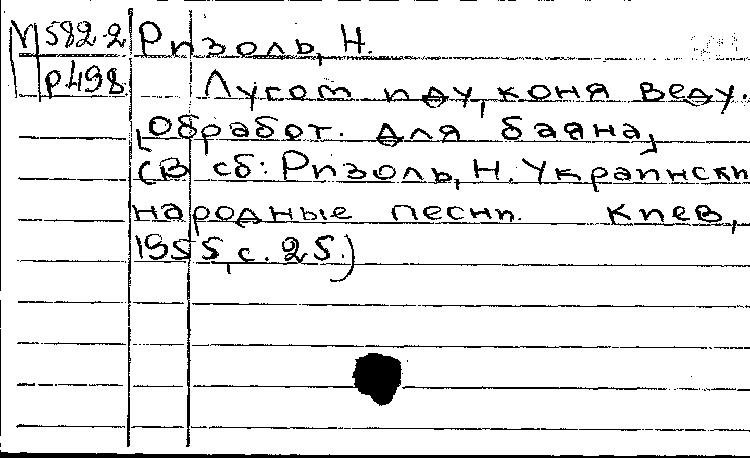 М 582.2 Ризоль, Н.
Р498 Лугом иду, коня веду.
[Обработ. для баяна]
(В сб: Ризоль, Н. Украински
народные песни. Киев,
1955, с. 25.)